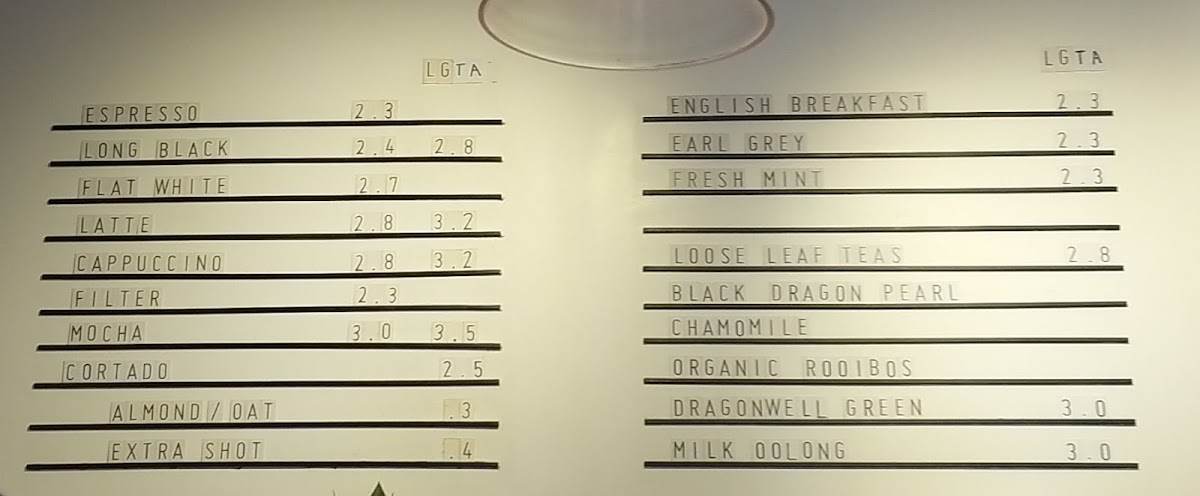 LGTA
ESPRESSO 2.3
LONG BLACK 2.4 2.8
FLAT WHITE 2.7
LATTE 2.8 3.2
CAPPUCCINO 2.8 3.2
FILTER 2.3
MOCHA 3.0 3.5
CORTADO 2.5
ALMOND/OAT .3
EXTRA SHOT .4
LGTA
ENGLISH BREAKFAST 2.3
EARL GREY 2.3
FRESH MINT 2.3
LOOSE LEAF TEAS 2.8
BLACK DRAGON PEARL
CHAMOMILE
ORGANIC ROOIBOS
DRAGONWELL GREEN 3.0
MILK OOLONG 3.0